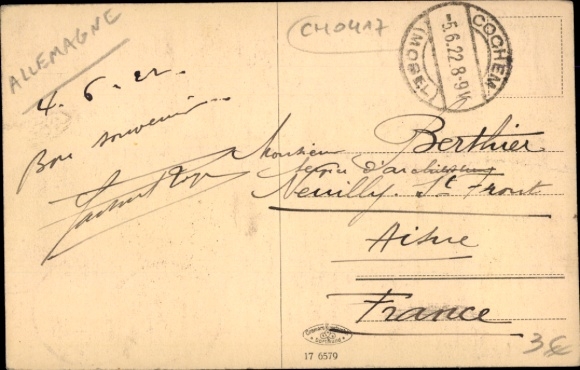 ALLEMAGNE
CH0417
COCHEM
(MOSEL)
-5.6.22.8-9V.
4. 6. 22.
Bon souvenir
Monsieur Berthier
Service d'architecture
Neuilly. St Front
Aisne
France
17 6579
3€